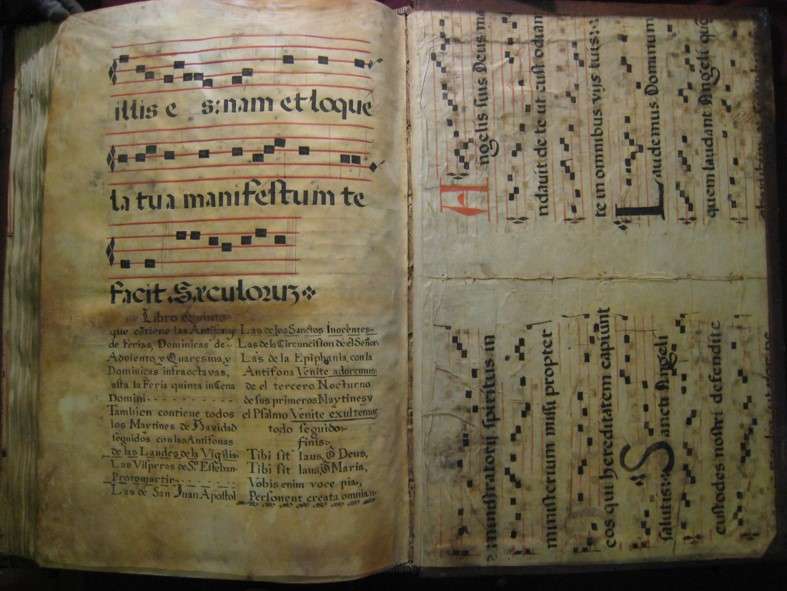 illis e s: nam et loque
la tua manifestum te
facit. Sæculorum
Libro quinto
que contiene las Antifonas
de Ferias, Dominicas de
Adviento, y Quaresma, y
Dominicas infraoctavas,
asta la Feria quinta in Cena
Domini
Tambien contiene todos
los Maytines de Navidad
seguidos con las Antifonas
de las Laudes de la Vigilia
Las Visperas de Sn. Esteban
Protomartir
Las de San Juan Apostol
Las de los Sanctos Inocentes
Las de la Circuncision de el Señor
Las de la Epiphania, con la
Antifona Venite adoremus
de el tercero Nocturno
de sus primeros Maytines y
el Psalmo Venite exultemus
todo seguido
finis
Tibi sit laus, ô Deus,
Tibi sit laus, ô Maria,
Vobis enim voce pia,
Personent creata omnia
Angelis suis Deus
ndavit de te ut custodian
te in omnibus vijs tuis:
Laudemus Dominum
quem laudant Angeli
ministratorij spiritus in
ministerium missi propter
eos qui hereditatem capiunt
salutis: Sancti Angeli
custodes nostri defendite